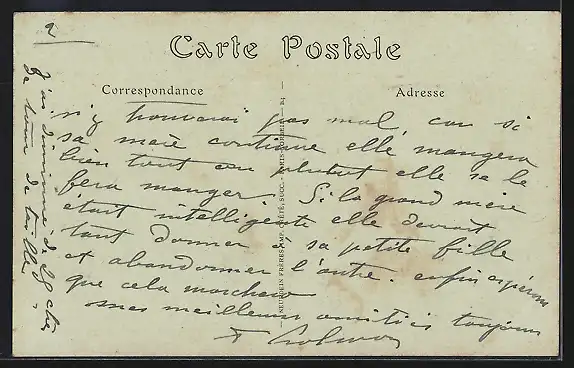 2
Carte Postale
Correspondance
Adresse
n'y trouverai pas mal, car si
sa mère continue elle mangera
bien tout ou plutot elle se le
fera manger. Si la grand mère
était intelligente elle devrait
tout donner à sa petite fille
et abandonner l'autre. enfin espérons
que cela marchera
mes meilleurs amitiés toujours
J'ai diminué de
de tour de taille
NEURDEIN FRÈRES IMP. CRÉTÉ, SUCC. PARIS CORBEIL